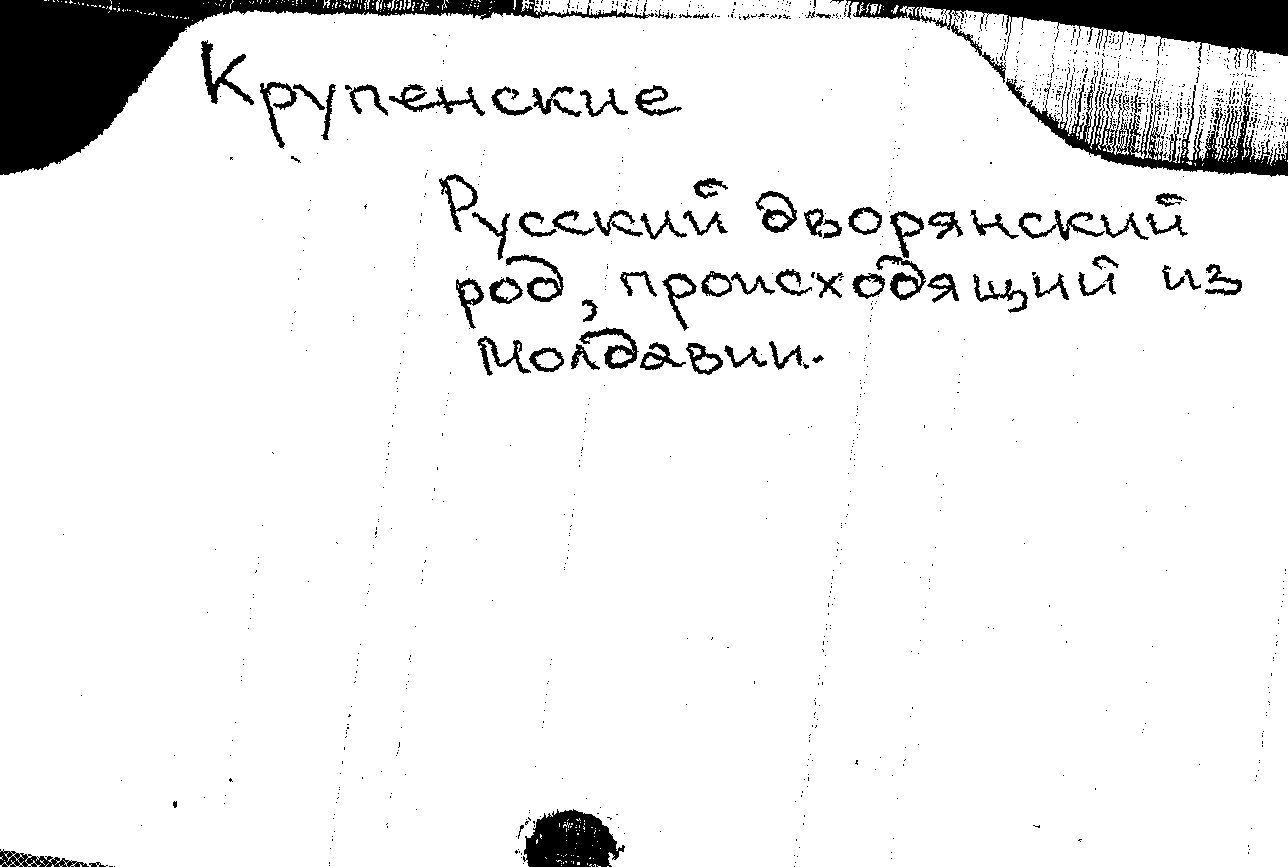 Крупенские
Русский дворянский
род, происходящий из
Молдавии.